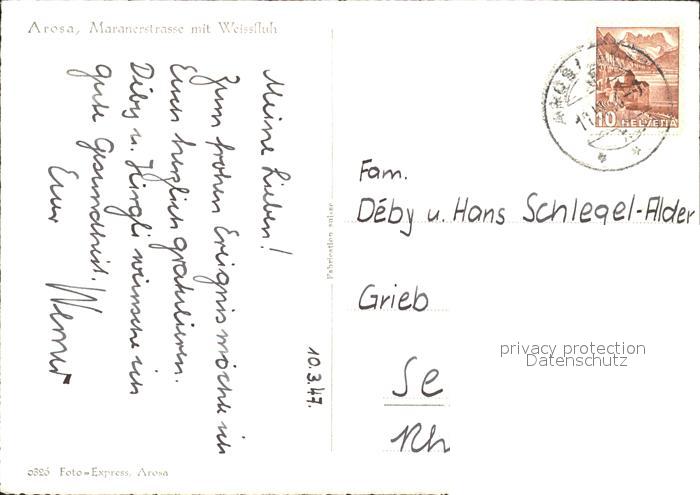 Arosa, Maranerstrasse mit Weissfluh
10.3.47.
Meine Lieben!
Zum frohen Ereignis möchte ich
Euch herzlich gratulieren.
Déby u. Hirzli wünsche ich
gute Gesundheit!
Euer Werner
Fabrication suisse
AROSA
10 HELVETIA
Fam.
Déby u. Hans Schlegel-Alder
Grieb
Se
Rh
privacy protection
Datenschutz
0326 Foto=Express, Arosa